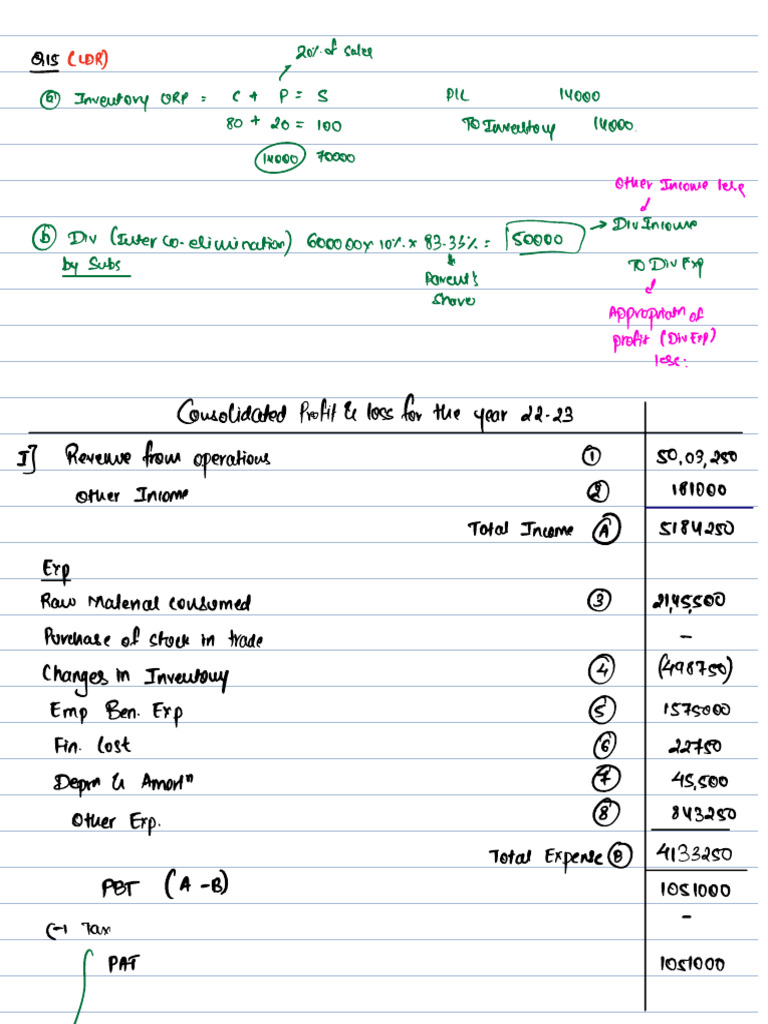 Q15 (LDR)
20% of sales
(a) Inventory URP = C + P = S
80 + 20 = 100
14000 70000
P/L 14000
To Inventory 14000
(b) Div (Inter co-elimination) 600000 x 10% x 83.33% = 50000
by Subs
Parent's
share
Other Income less
→ Div Income
To Div Exp
Appropriatn of
profit (Div Exp)
less:
Consolidated Profit & loss for the year 22-23
I] Revenue from operations (1) 50,03,250
Other Income (2) 181000
Total Income (A) 5184250
Exp
Raw Material consumed (3) 21,45,500
Purchase of stock in trade -
Changes in Inventory (4) (498750)
Emp Ben. Exp (5) 1575000
Fin. Cost (6) 22750
Deprn & Amortn (7) 45,500
Other Exp. (8) 843250
Total Expense (B) 4133250
PBT (A - B) 1051000
(-) Tax -
PAT 1051000